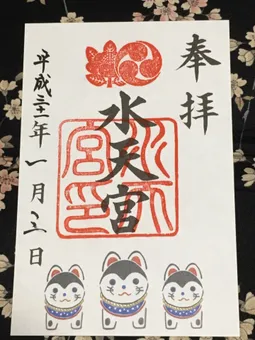 奉拝
水天宮
平成三十一年一月 日
水天
宮印